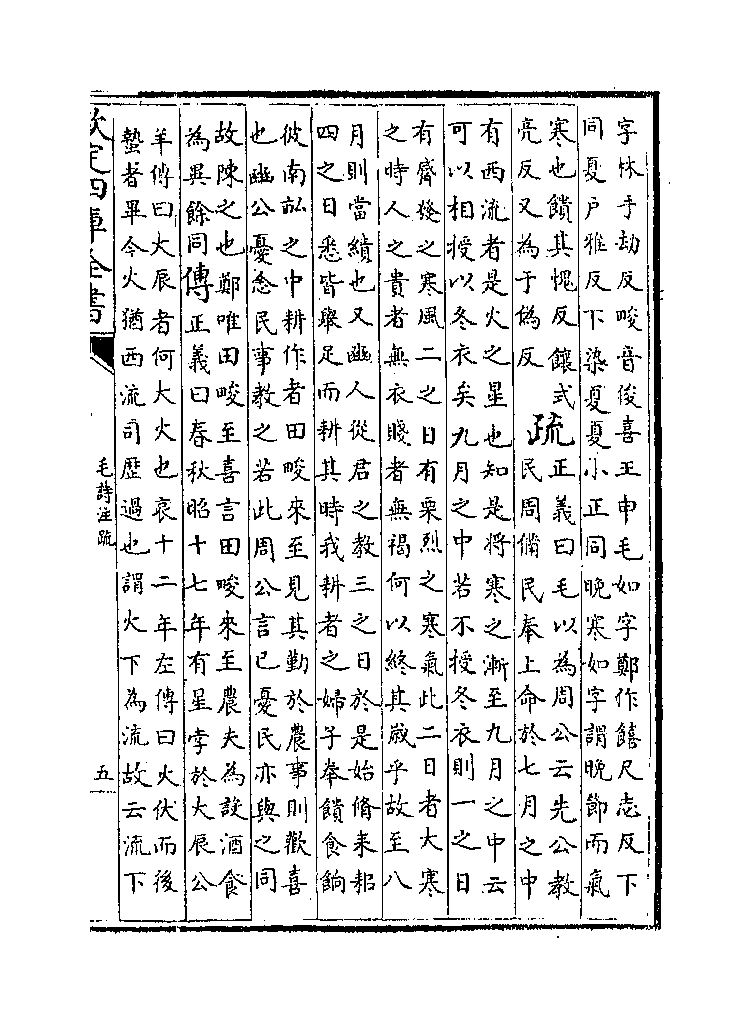 字林于劫反畯音俊喜王申毛如字鄭作饎尺志反下
同夏户雅反下染夏夏小正同晚寒如字謂晚節而氣
寒也饋其愧反饟式
亮反又為于偽反
疏
正義曰毛以為周公云先公教
民周備民奉上命於七月之中
有西流者是火之星也知是將寒之漸至九月之中云
可以相授以冬衣矣九月之中若不授冬衣則一之日
有觱發之寒風二之日有栗烈之寒氣此二日者大寒
之時人之貴者無衣賤者無褐何以終其嵗乎故至八
月則當績也又豳人從君之教三之日於是始脩耒耜
四之日悉皆舉足而耕其時我耕者之婦子奉饋食餉
彼南畝之中耕作者田畯來至見其勤於農事則歡喜
也豳公憂念民事教之若此周公言已憂民亦與之同
故陳之也鄭唯田畯至喜言田畯來至農夫為設酒食
為異餘同傳正義曰春秋昭十七年有星孛於大辰公
羊傳曰大辰者何大火也哀十二年左傳曰火伏而後
蟄者畢今火猶西流司歴過也謂火下為流故云流下
欽定四庫全書
毛詩注疏
五